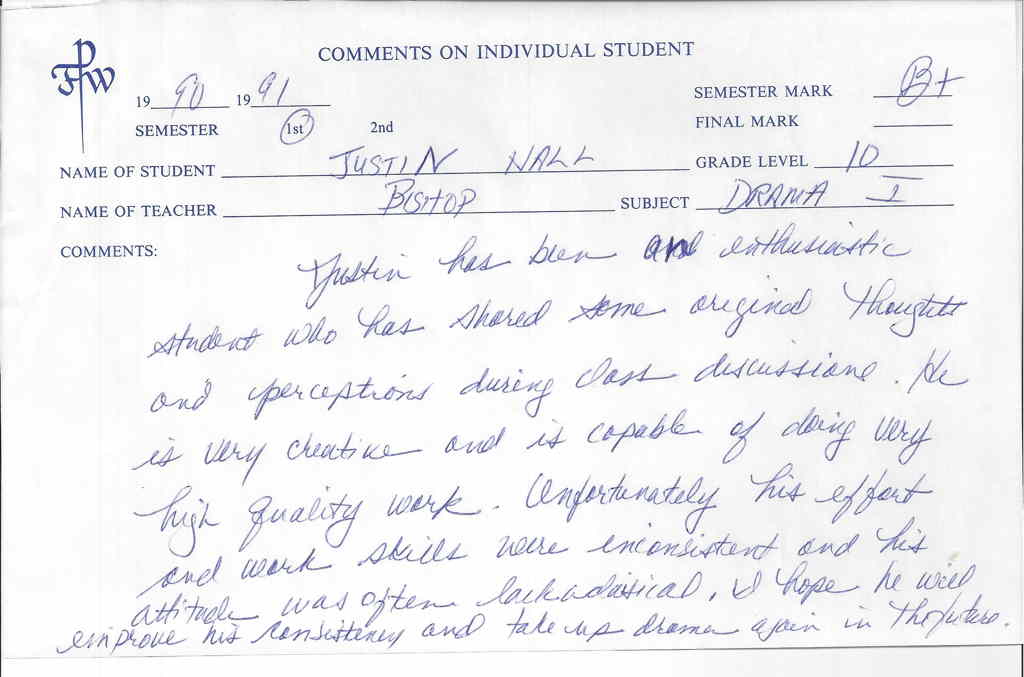 FPW
COMMENTS ON INDIVIDUAL STUDENT
19 90 19 91 SEMESTER MARK B+
SEMESTER 1st 2nd FINAL MARK
NAME OF STUDENT JUSTIN HALL GRADE LEVEL 10
NAME OF TEACHER BISHOP SUBJECT DRAMA I
COMMENTS: Justin has been an enthusiastic
student who has shared some original thoughts
and perceptions during class discussions. He
is very creative and is capable of doing very
high quality work. Unfortunately his effort
and work skills were inconsistent and his
attitude was often lackadaisical. I hope he will
improve his consistency and take up drama again in the future.